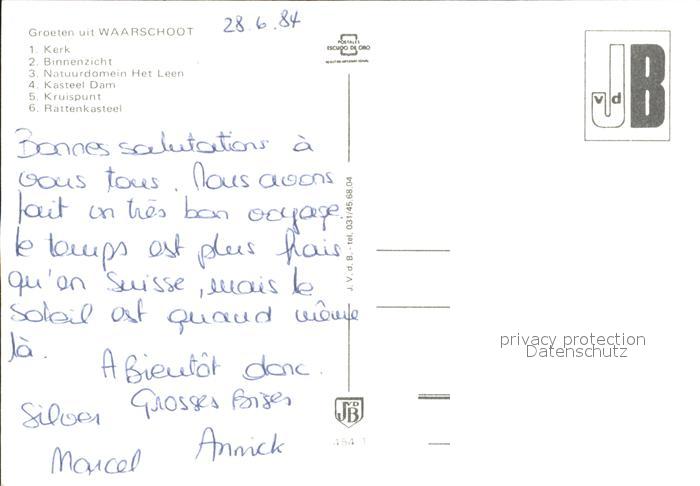 28.6.84
Groeten uit WAARSCHOOT
1. Kerk
2. Binnenzicht
3. Natuurdomein Het Leen
4. Kasteel Dam
5. Kruispunt
6. Rattenkasteel
POSTALES
ESCUDO DE ORO
J
v d
B
Bonnes salutations à
vous tous. Nous avons
fait un très bon voyage.
le temps est plus frais
qu'en Suisse, mais le
soleil est quand même
là.
A Bientôt donc.
Grosses Bises
Silver
Marcel
Annick
J. V. d. B. - tel. 031/45.68.04
VD
JB
privacy protection
Datenschutz